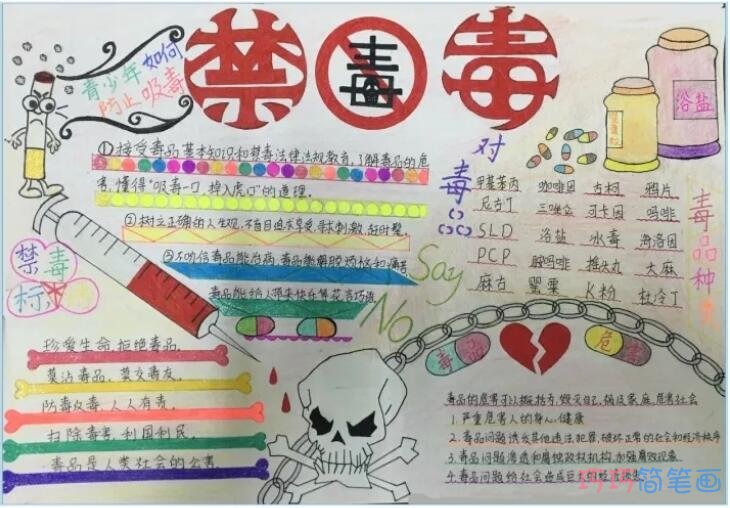 禁毒
毒
青少年如何
防止吸毒
①接受毒品基本知识和禁毒法律法规教育,了解毒品的危
害,懂得“吸毒一口,掉入虎口”的道理。
②树立正确的人生观,不盲目追求享受,寻求刺激,赶时髦。
③不听信毒品能治病,毒品能解脱烦恼和痛苦
毒品能给人带来快乐等花言巧语
Say
No
禁毒
标
珍爱生命,拒绝毒品。
莫沾毒品,莫交毒友。
防毒反毒,人人有责。
扫除毒害,利国利民。
毒品是人类社会的公害
对毒说
浴盐
甲基苯丙 咖啡因 古柯 鸦片
尼古丁 三唑仑 可卡因 吗啡
SLD 浴盐 冰毒 海洛因
PCP 摇头丸 大麻
麻古 罂粟 K粉 杜冷丁
毒品种类
毒品危害
毒品的危害可以概括为,毁灭自己,祸及家庭,危害社会
1.严重危害人的身心健康
2.毒品问题诱发其他违法犯罪,破坏正常的社会和经济秩序
3.毒品问题渗透和腐蚀政权机构,加强腐败现象
4.毒品问题给社会造成巨大的经济损失
巧巧简笔画